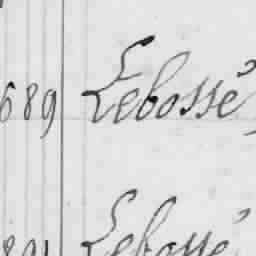 689 Lebossé
891 Lebossé